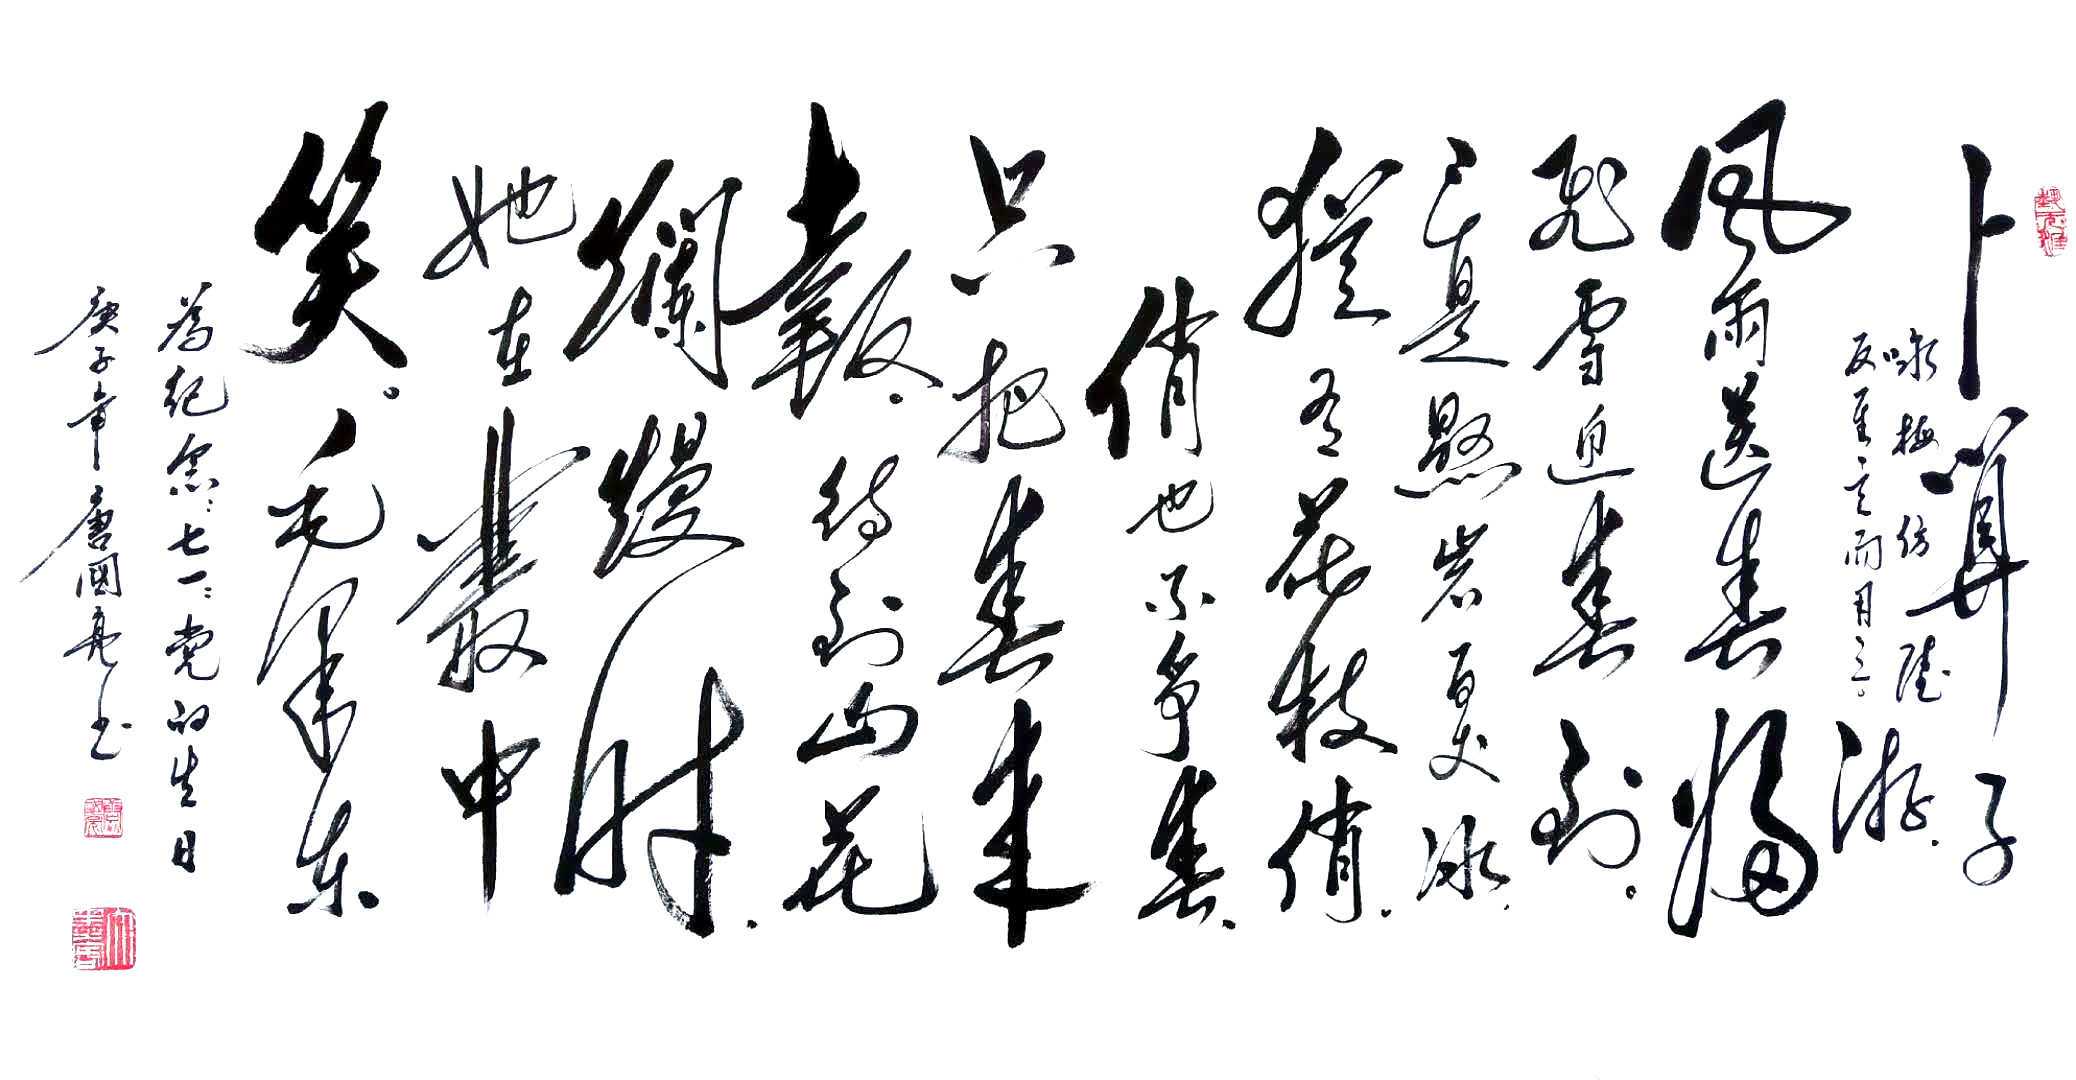 卜算子
咏梅仿陸游.
反其意而用之。
风雨送春归
飞雪迎春到。
已是懸岩百丈冰.
犹有花枝俏.
俏也不争春.
只把春来
報。待到山花
爛熳时.
她在叢中
笑。毛泽东
為纪念:七一:党的生日
庚子年唐國亮书